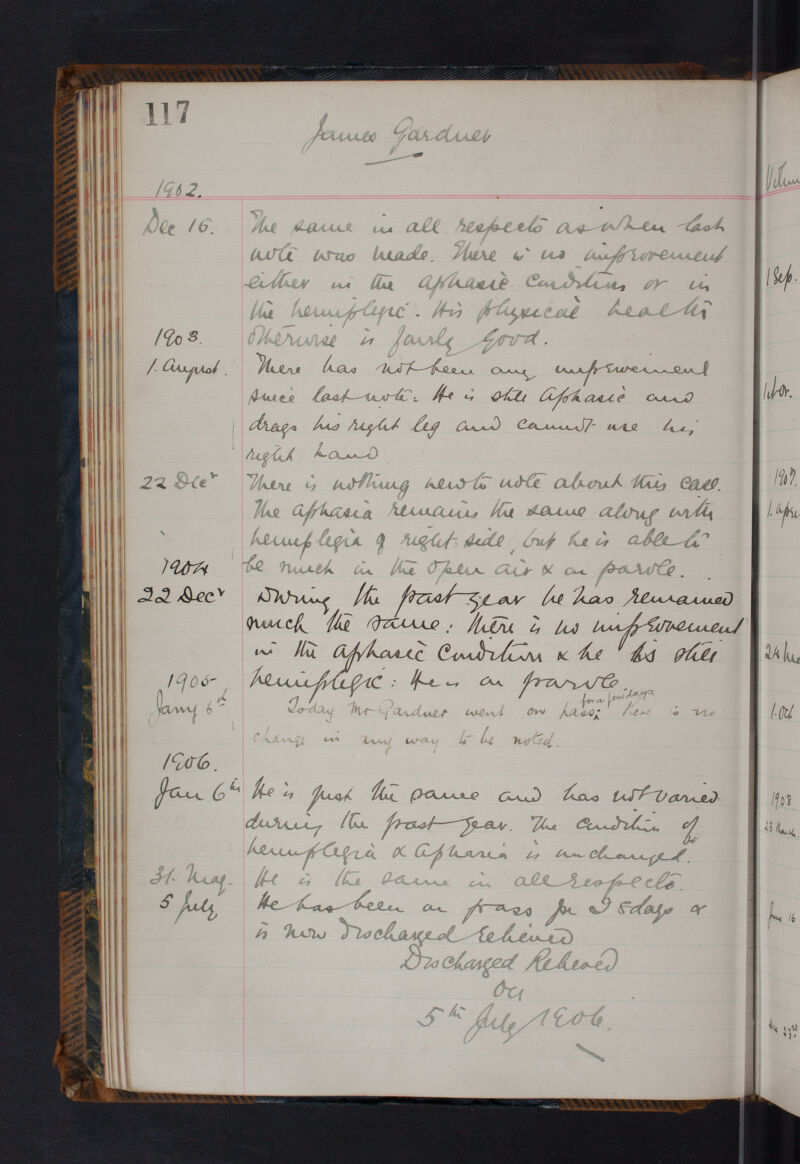 117
James Gardner
1902.
Dec 16. The same in all respects as when last
note was made. There is no improvement
either in the aphasic condition or in
the hemiplegic. His physical health
1903. otherwise is fairly good.
1. August. There has not been any improvement
since last note. He is still aphasic and
drags his right leg and cannot use his
right hand
22 Decr There is nothing new to note about this case.
The aphasia remains the same along with
hemiplegia of right side, but he is able to
1904 be much in the open air & on parole.
22 Decr During the past year he has remained
much the same: there is no improvement
in the aphasic condition & he is still
1905 hemiplegic: He is on parole
Jany 6th Today Mr Gardner went on pass for a few days. There is no
change in any way to be noted.
1906.
Jan 6th He is just the same and has not varied
during the past year. The condition of
hemiplegia & aphasia is unchanged.
31. May. He is the same in all respects.
5 July He has been on pass for 28 days &
is now discharged relieved
Discharged Relieved
on
5th July 1906.
1 Sep.
1 Nov.
1907.
1. April
24
1. Oct
1908
23 March
June 16